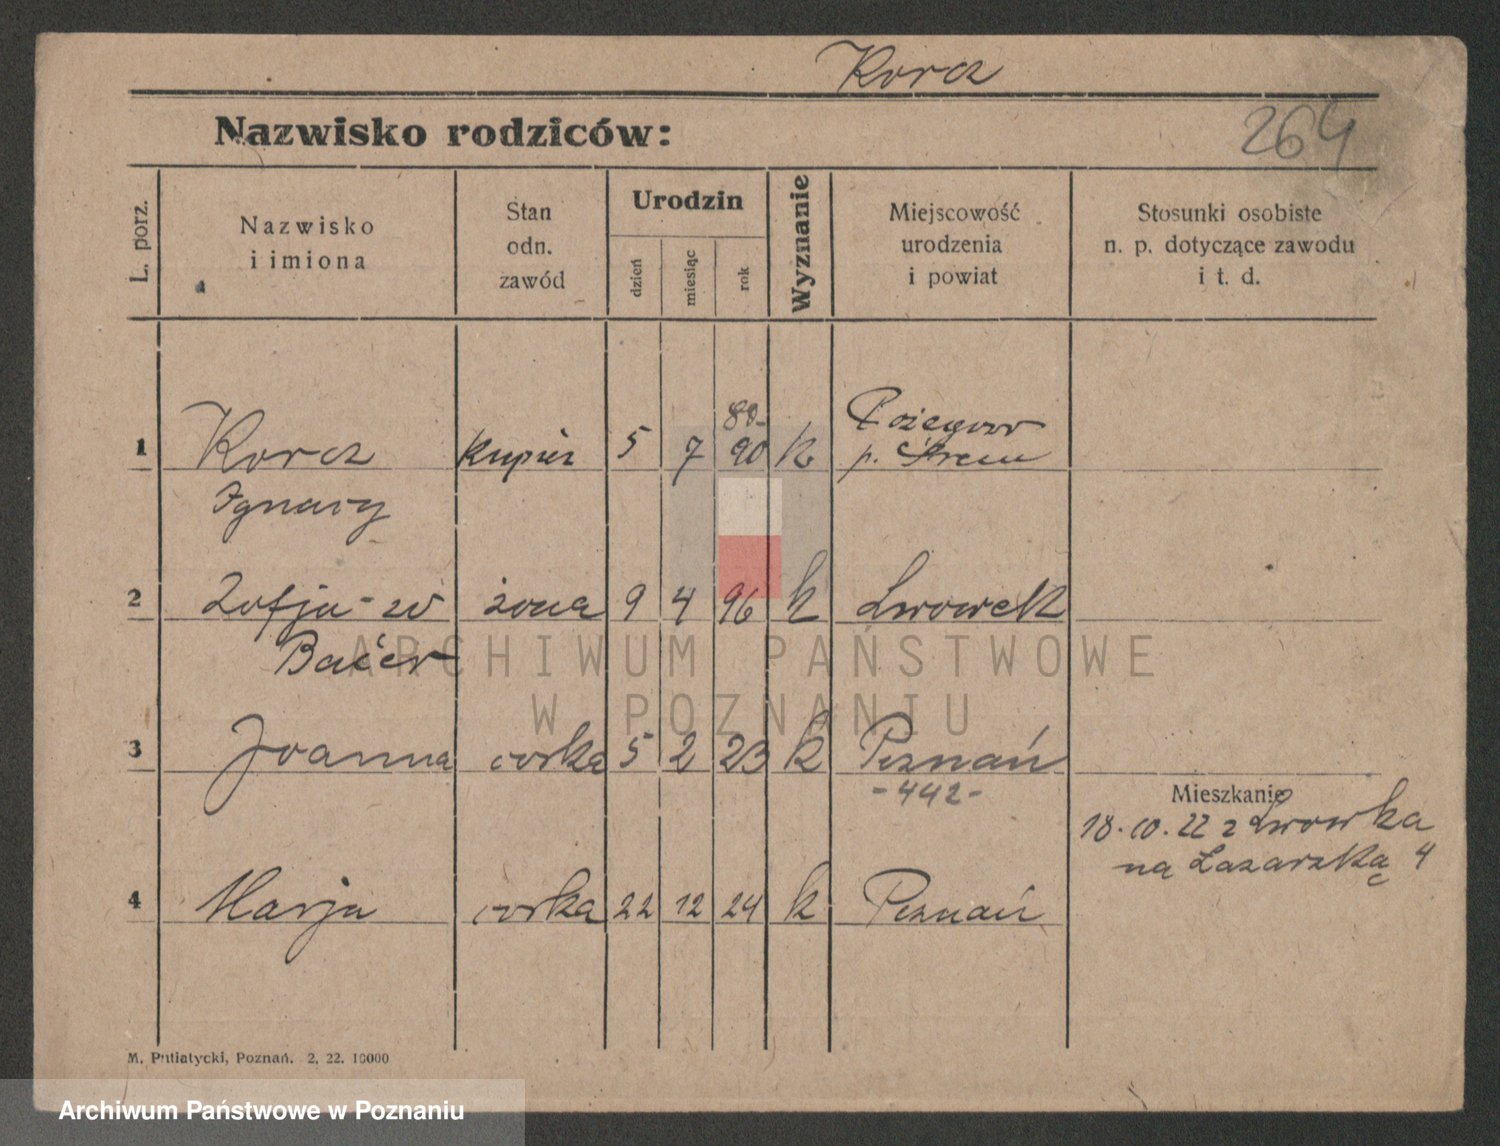 Korcz
Nazwisko rodziców:
264
L. porz.
Nazwisko
i imiona
Stan
odn.
zawód
Urodzin
dzień
miesiąc
rok
Wyznanie
Miejscowość
urodzenia
i powiat
Stosunki osobiste
n. p. dotyczące zawodu
i t. d.
1 Korcz kupiec 5 7 90 k Pożegowo
p. Śrem
Ignacy
2 Zofja - w żona 9 4 96 k Lwowek
3 Joanna corka 5 2 23 k Poznań
-442-
Mieszkanie
18.10.22 z Lwowka
na Lazarską 4
4 Marja corka 22 12 24 k Poznań
M. Putiatycki, Poznań. 2, 22. 10000
ARCHIWUM PAŃSTWOWE
W POZNANIU
Archiwum Państwowe w Poznaniu